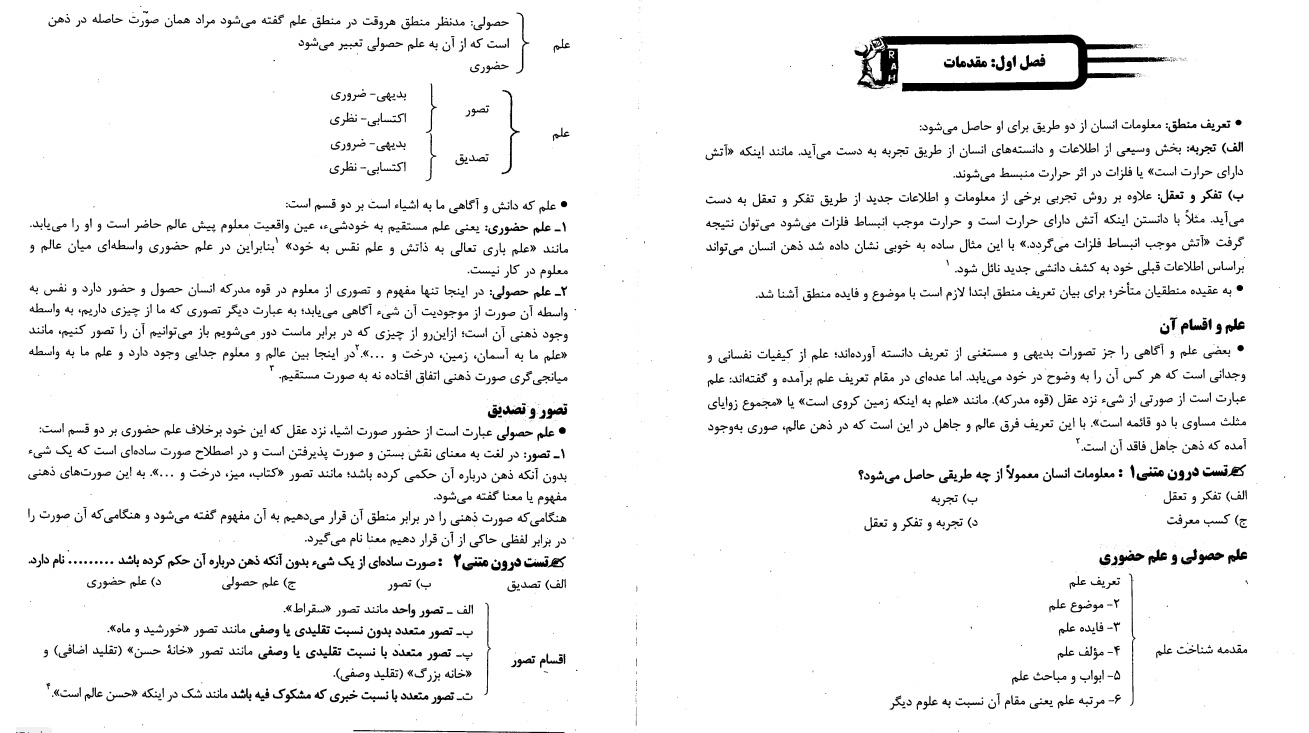 فصل اول: مقدمات
RAH
● تعریف منطق: معلومات انسان از دو طریق برای او حاصل می‌شود:
الف) تجربه: بخش وسیعی از اطلاعات و دانسته‌های انسان از طریق تجربه به دست می‌آید. مانند اینکه «آتش
دارای حرارت است» یا فلزات در اثر حرارت منبسط می‌شوند.
ب) تفکر و تعقل: علاوه بر روش تجربی برخی از معلومات و اطلاعات جدید از طریق تفکر و تعقل به دست
می‌آید. مثلاً با دانستن اینکه آتش دارای حرارت است و حرارت موجب انبساط فلزات می‌شود می‌توان نتیجه
گرفت «آتش موجب انبساط فلزات می‌گردد.» با این مثال ساده به خوبی نشان داده شد ذهن انسان می‌تواند
براساس اطلاعات قبلی خود به کشف دانشی جدید نائل شود. ۱
● به عقیده منطقیان متأخر؛ برای بیان تعریف منطق ابتدا لازم است با موضوع و فایده منطق آشنا شد.
علم و اقسام آن
● بعضی علم و آگاهی را جز تصورات بدیهی و مستغنی از تعریف دانسته آورده‌اند؛ علم از کیفیات نفسانی و
وجدانی است که هر کس آن را به وضوح در خود می‌یابد. اما عده‌ای در مقام تعریف علم برآمده و گفته‌اند: علم
عبارت است از صورتی از شیء نزد عقل (قوه مدرکه). مانند «علم به اینکه زمین کروی است» یا «مجموع زوایای
مثلث مساوی با دو قائمه است». با این تعریف فرق عالم و جاهل در این است که در ذهن عالم، صوری به‌وجود
آمده که ذهن جاهل فاقد آن است.۲
تست درون متنی۱ : معلومات انسان معمولاً از چه طریقی حاصل می‌شود؟
الف) تفکر و تعقل ب) تجربه
ج) کسب معرفت د) تجربه و تفکر و تعقل
علم حصولی و علم حضوری
مقدمه شناخت علم
۱ تعریف علم
۲- موضوع علم
۳- فایده علم
۴- مؤلف علم
۵- ابواب و مباحث علم
۶- مرتبه علم یعنی مقام آن نسبت به علوم دیگر
علم
حصولی: مدنظر منطق هروقت در منطق علم گفته می‌شود مراد همان صوّرت حاصله در ذهن
است که از آن به علم حصولی تعبیر می‌شود
حضوری
علم
تصور
بدیهی- ضروری
اکتسابی- نظری
تصدیق
بدیهی- ضروری
اکتسابی- نظری
● علم که دانش و آگاهی ما به اشیاء است بر دو قسم است:
۱ـ علم حضوری: یعنی علم مستقیم به خودشیء، عین واقعیت معلوم پیش عالم حاضر است و او را می‌یابد.
مانند «علم باری تعالی به ذاتش و علم نفس به خود» ۱بنابراین در علم حضوری واسطه‌ای میان عالم و
معلوم در کار نیست.
۲ـ علم حصولی: در اینجا تنها مفهوم و تصوری از معلوم در قوه مدرکه انسان حصول و حضور دارد و نفس به
واسطه آن صورت از موجودیت آن شیء آگاهی می‌یابد؛ به عبارت دیگر تصوری که ما از چیزی داریم، به واسطه
وجود ذهنی آن است؛ ازاین‌رو از چیزی که در برابر ماست دور می‌شویم باز می‌توانیم آن را تصور کنیم، مانند
«علم ما به آسمان، زمین، درخت و ...».۲در اینجا بین عالم و معلوم جدایی وجود دارد و علم ما به واسطه
میانجی‌گری صورت ذهنی اتفاق افتاده نه به صورت مستقیم. ۳
تصور و تصدیق
● علم حصولی عبارت است از حضور صورت اشیا، نزد عقل که این خود برخلاف علم حضوری بر دو قسم است:
۱ـ تصور: در لغت به معنای نقش بستن و صورت پذیرفتن است و در اصطلاح صورت ساده‌ای است که یک شیء
بدون آنکه ذهن درباره آن حکمی کرده باشد؛ مانند تصور «کتاب، میز، درخت و ...». به این صورت‌های ذهنی
مفهوم یا معنا گفته می‌شود.
هنگامی‌که صورت ذهنی را در برابر منطق آن قرار می‌دهیم به آن مفهوم گفته می‌شود و هنگامی‌که آن صورت را
در برابر لفظی حاکی از آن قرار دهیم معنا نام می‌گیرد.
تست درون متنی۲ : صورت ساده‌ای از یک شیء بدون آنکه ذهن درباره آن حکم کرده باشد ......... نام دارد.
الف) تصدیق ب) تصور ج) علم حصولی د) علم حضوری
اقسام تصور
الف ـ تصور واحد مانند تصور «سقراط».
ب‌ـ تصور متعدد بدون نسبت تقلیدی یا وصفی مانند تصور «خورشید و ماه».
پ‌ـ تصور متعدد با نسبت تقلیدی یا وصفی مانند تصور «خانهٔ حسن» (تقلید اضافی) و
«خانه بزرگ» (تقلید وصفی).
ت‌ـ تصور متعدد با نسبت خبری که مشکوک فیه باشد مانند شک در اینکه «حسن عالم است».۴